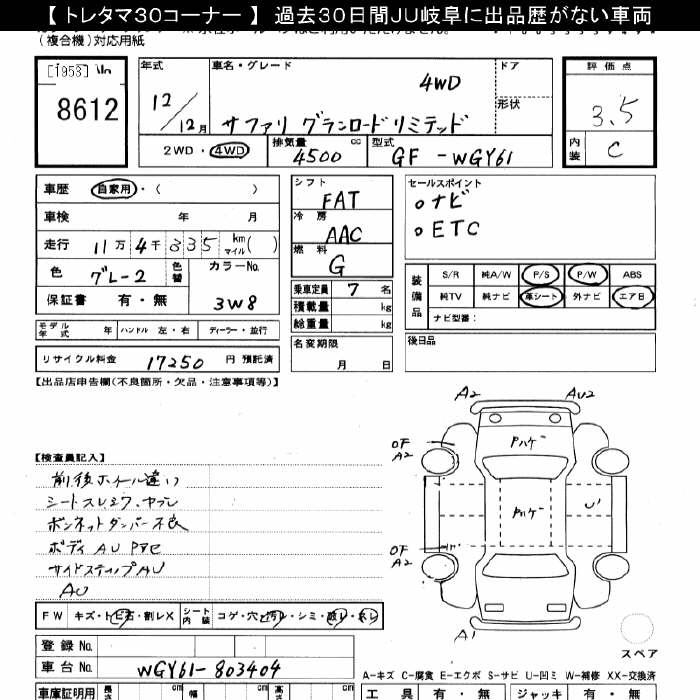 【 トレタマ30コーナー 】 過去30日間JU岐阜に出品歴がない車両
(複合機)対応用紙
8612
年式
12/12月
車名・グレード
4WD
サファリ グランロードリミテッド
ドア
形状
2WD・4WD
排気量
4500 cc
型式
GF-WGY61
評価点
3.5
内装
C
車歴 自家用・( )
車検 年 月
走行 11万4千335 km マイル( )
色 グレ-2
色替
カラーNo.
3W8
保証書 有・無
シフト
FAT
冷房
AAC
燃料
G
乗車定員 7 名
積載量 kg
総重量 kg
名変期限
月 日
セールスポイント
○ナビ
○ETC
装備品
S/R 純A/W P/S P/W ABS
純TV 純ナビ 革シート 外ナビ エアB
ナビ型番:
後日品
モデル年式 年 ハンドル 左・右 ディーラー・並行
リサイクル料金 17250 円 預託済
【出品店申告欄(不良箇所・欠品・注意事項等)】
【検査員記入】
前後ホイール違い
シートスレ シワ、ヤブレ
ボンネットダンパー不良
ボディAU Pアセ
サイドステップAU
AU
A2
AU2
Pハゲ
OF
A2
Pハゲ
U'
OF
A2
A1
スペア
FW キズ・トビ石・割レX
シート内装 コゲ・穴・汚レ・シミ・破レ・スレ
登録No.
車台No. WGY61-803404
A-キズ C-腐食 E-エクボ S-サビ U-凹ミ W-補修 XX-交換済
車庫証明用 長さ cm 幅 cm 高さ cm
工具 有・無 ジャッキ 有・無